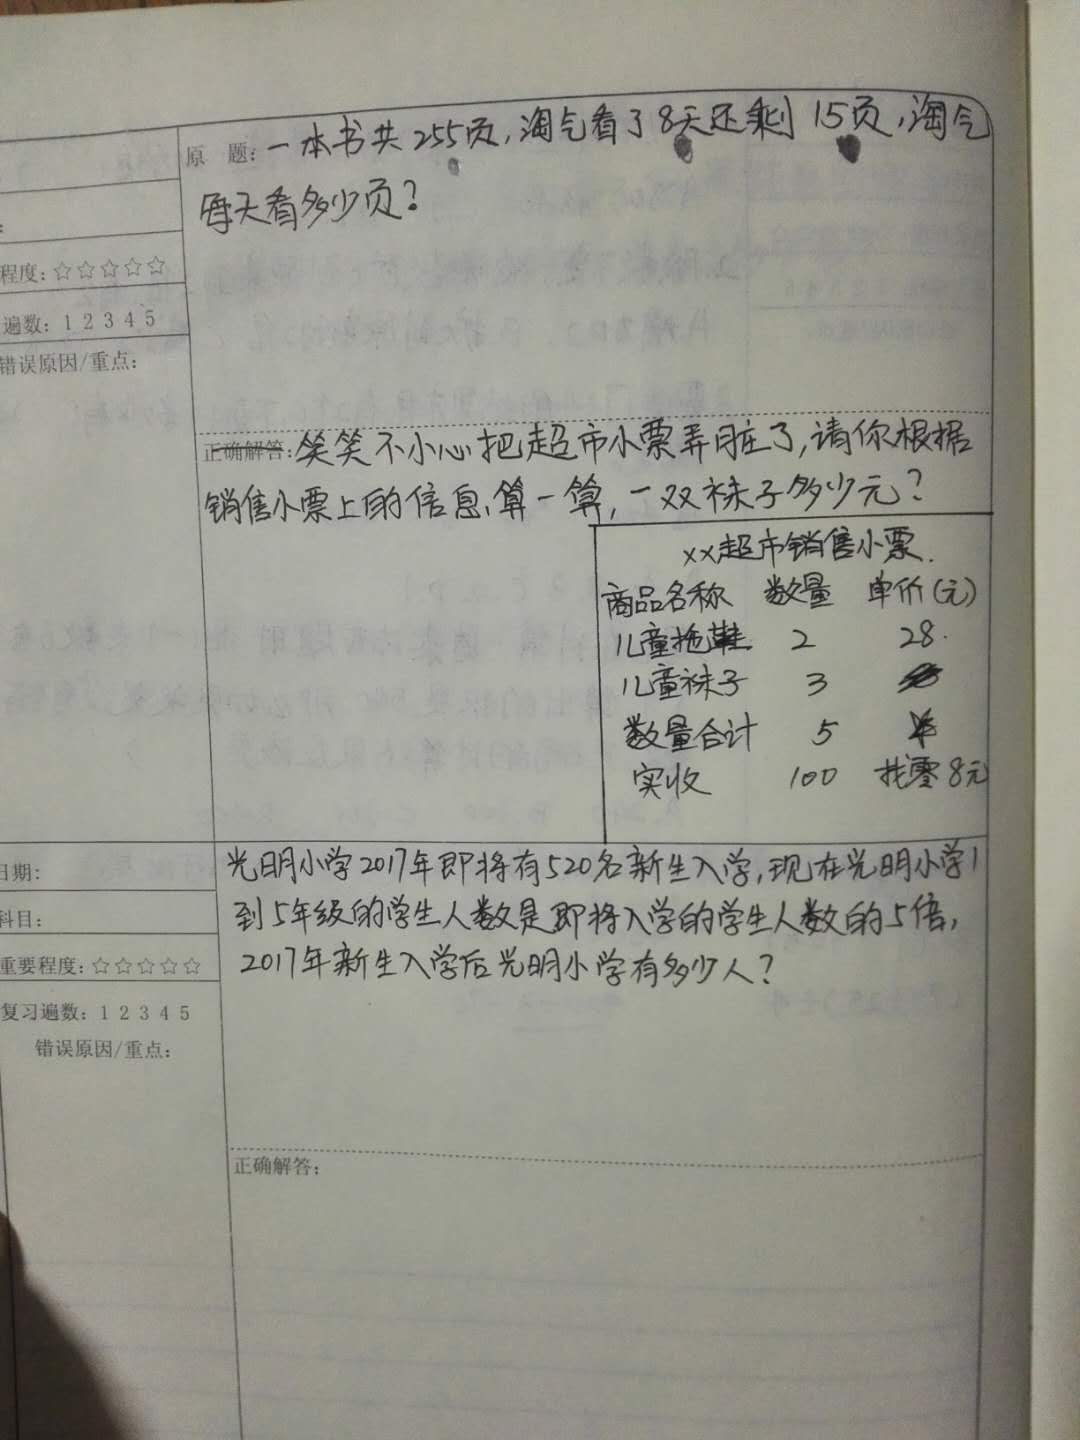 原 题:一本书共255页,淘气看了8天还剩15页,淘气
每天看多少页?
程度:☆☆☆☆☆
遍数:1 2 3 4 5
错误原因/重点:
正确解答:笑笑不小心把超市小票弄脏了,请你根据
销售小票上的信息,算一算,一双袜子多少元?
xx超市销售小票.
商品名称 数量 单价(元)
儿童拖鞋 2 28.
儿童袜子 3
数量合计 5
实收 100 找零8元
日期:
光明小学2017年即将有520名新生入学,现在光明小学1
科目:
到5年级的学生人数是即将入学的学生人数的5倍,
重要程度:☆☆☆☆☆
2017年新生入学后光明小学有多少人?
复习遍数:1 2 3 4 5
错误原因/重点:
正确解答: